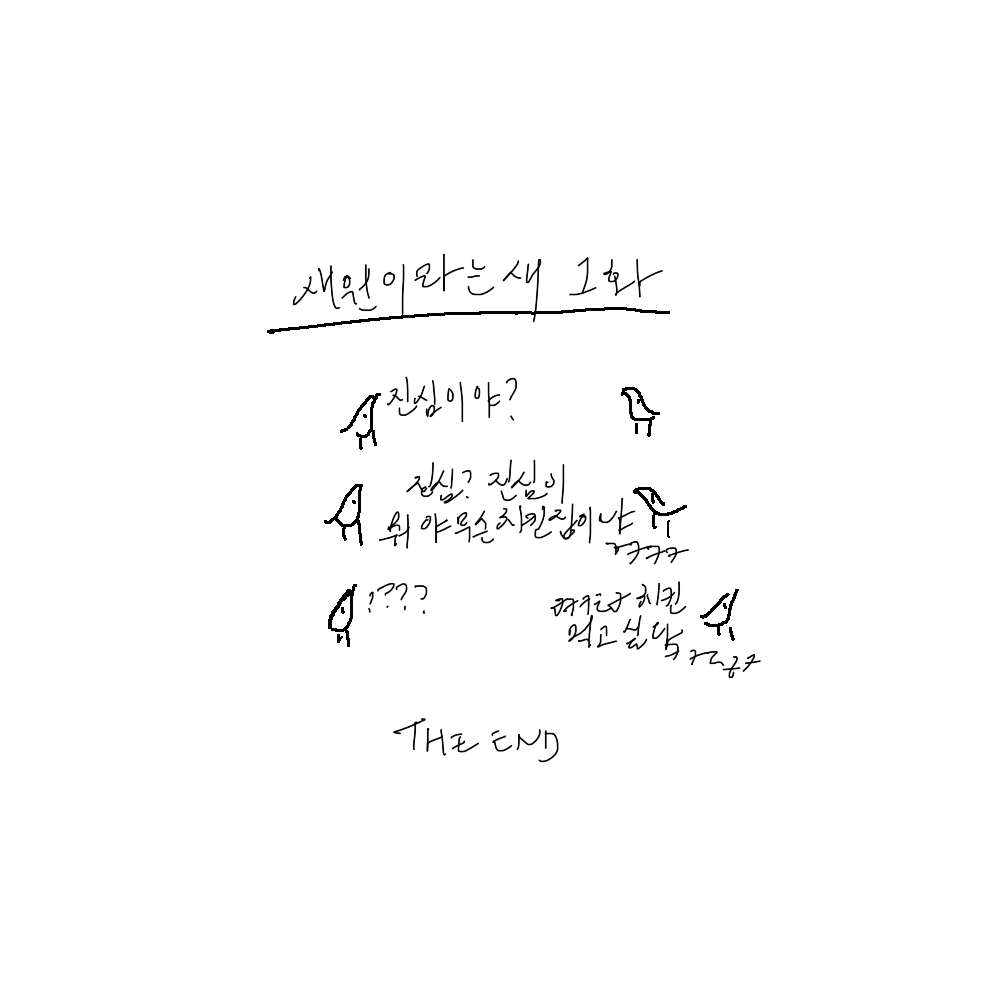 새원이라는새 1화
진심이야?
진심? 진심이
뭐야 무슨 치킨집이냐
ㅋㅋㅋㅋ
????
치킨
먹고싶다
ㅋㅋㅋㅋ
THE END